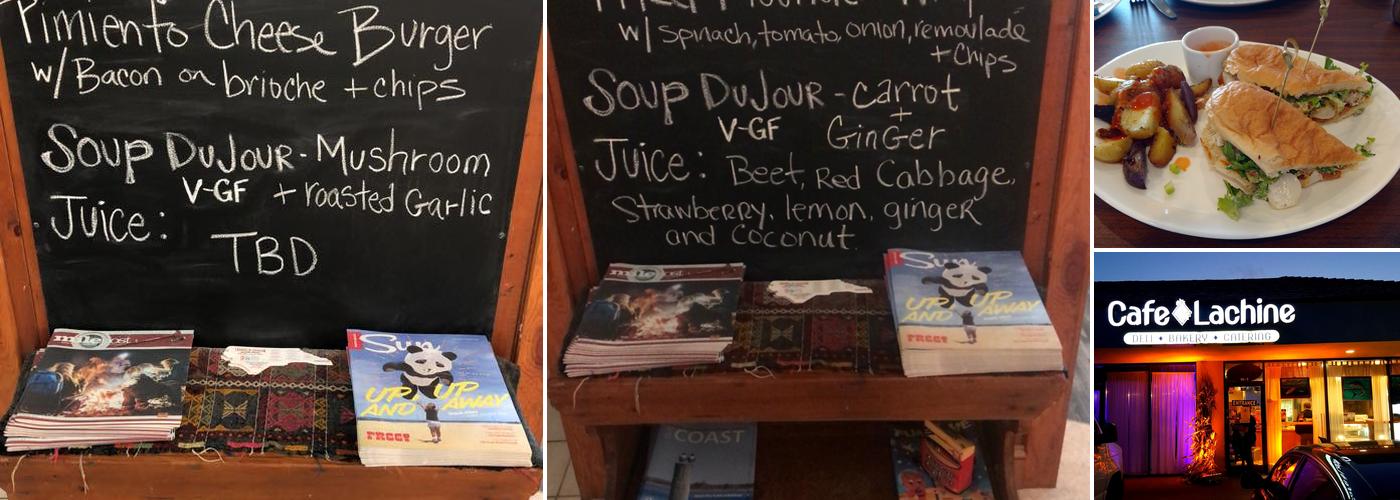 Pimiento Cheese Burger
w/ Bacon on brioche + chips
Soup DuJour - Mushroom
V-GF + roasted Garlic
Juice:
TBD
milepost
Sun
UP, UP
AND AWAY
FREE!
w/ spinach, tomato, onion, remoulade
+ Chips
Soup DuJour - carrot
+
V-GF GinGer
Juice: Beet, Red Cabbage,
Strawberry, lemon, ginger
and Coconut
milepost
Sun
UP, UP
AND AWAY
FREE!
COAST
Cafe Lachine
DELI • BAKERY • CATERING
ENTRANCE